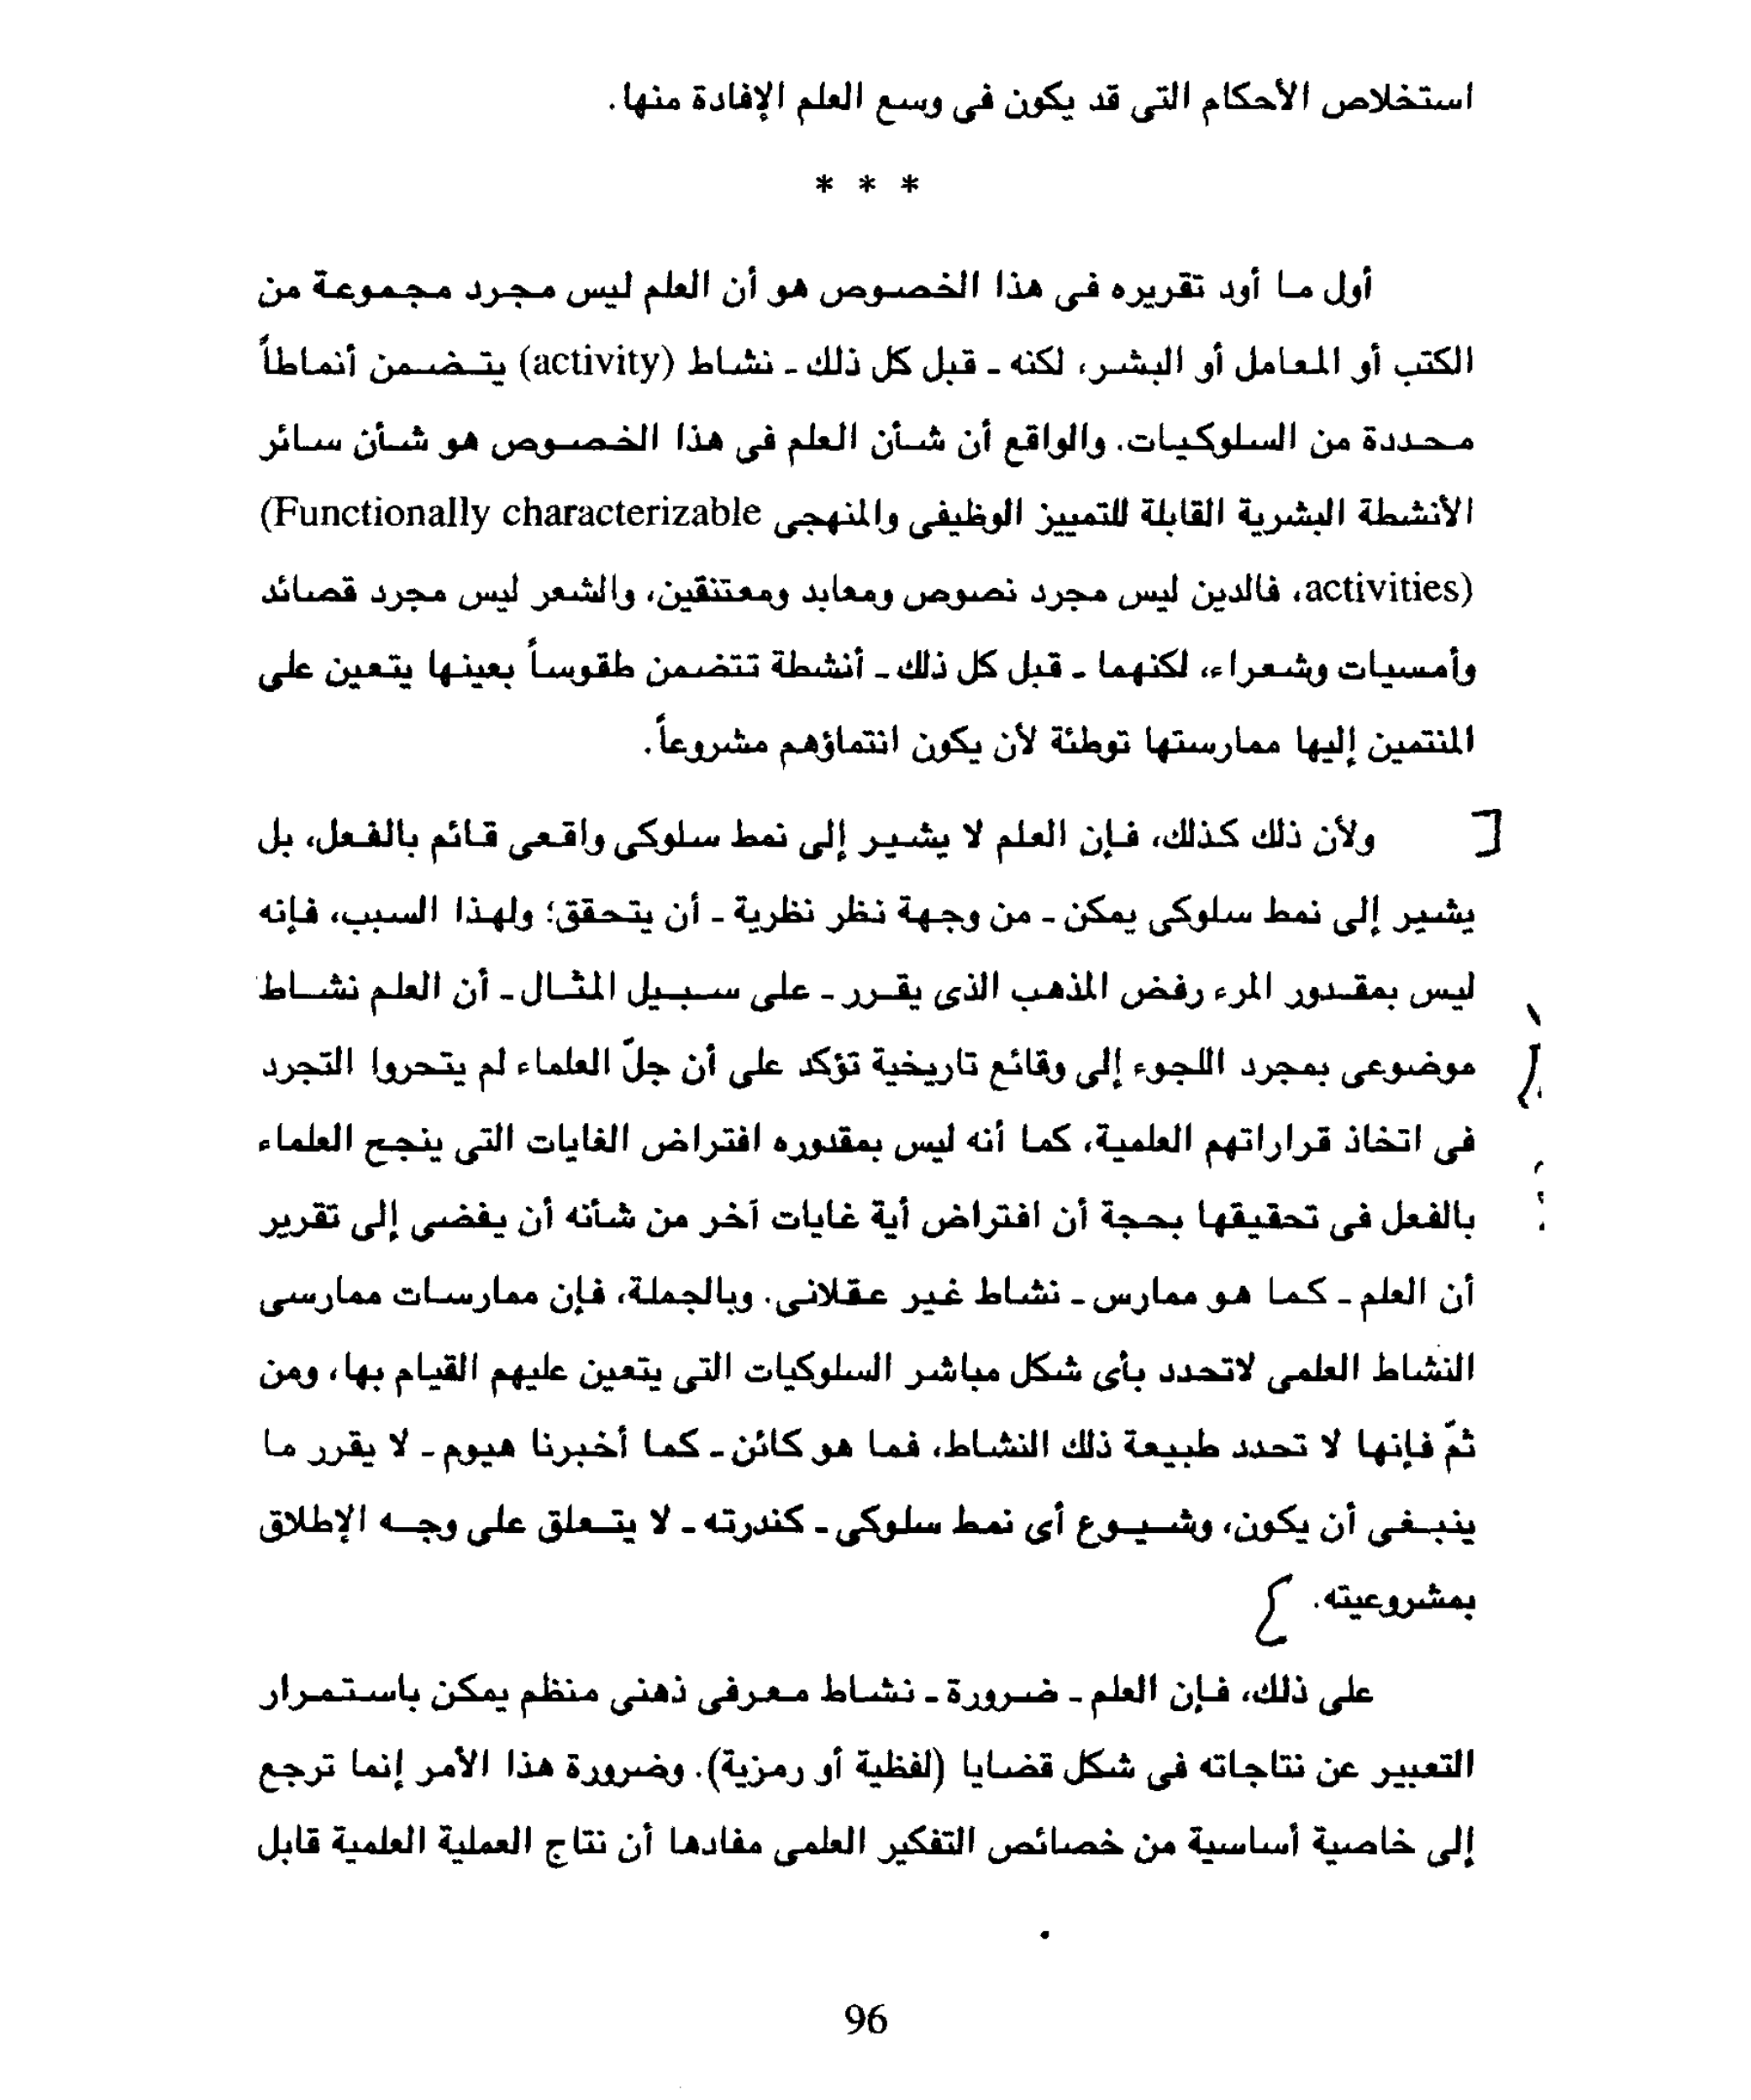 استخلاص الأحكام التى قد يكون فى وسع العلم الإفادة منها.
* * *
أول ما أود تقريره فى هذا الخصوص هو أن العلم ليس مجرد مجموعة من
الكتب أو المعامل أو البشر، لكنه - قبل كل ذلك - نشاط (activity) يتضمن أنماطاً
محددة من السلوكيات. والواقع أن شأن العلم فى هذا الخصوص هو شأن سائر
الأنشطة البشرية القابلة للتمييز الوظيفى والمنهجى (Functionally characterizable
activities)، فالدين ليس مجرد نصوص ومعابد ومعتنقين، والشعر ليس مجرد قصائد
وأمسيات وشعراء، لكنهما - قبل كل ذلك - أنشطة تتضمن طقوساً بعينها يتعين على
المنتمين إليها ممارستها توطئة لأن يكون انتماؤهم مشروعاً.
ولأن ذلك كذلك، فإن العلم لا يشير إلى نمط سلوكى واقعى قائم بالفعل، بل
يشير إلى نمط سلوكى يمكن - من وجهة نظر نظرية - أن يتحقق؛ ولهذا السبب، فإنه
ليس بمقدور المرء رفض المذهب الذى يقرر - على سبيل المثال - أن العلم نشاط
موضوعى بمجرد اللجوء إلى وقائع تاريخية تؤكد على أن جلّ العلماء لم يتحروا التجرد
فى اتخاذ قراراتهم العلمية، كما أنه ليس بمقدوره افتراض الغايات التى ينجح العلماء
بالفعل فى تحقيقها بحجة أن افتراض أية غايات آخر من شأنه أن يفضى إلى تقرير
أن العلم - كما هو ممارس - نشاط غير عقلانى. وبالجملة، فإن ممارسات ممارسى
النشاط العلمى لاتحدد بأى شكل مباشر السلوكيات التى يتعين عليهم القيام بها، ومن
ثمّ فإنها لا تحدد طبيعة ذلك النشاط، فما هو كائن - كما أخبرنا هيوم - لا يقرر ما
ينبغى أن يكون، وشيوع أى نمط سلوكى - كندرته - لا يتعلق على وجه الإطلاق
بمشروعيته.
على ذلك، فإن العلم - ضرورة - نشاط معرفى ذهنى منظم يمكن باستمرار
التعبير عن نتاجاته فى شكل قضايا (لفظية أو رمزية). وضرورة هذا الأمر إنما ترجع
إلى خاصية أساسية من خصائص التفكير العلمى مفادها أن نتاج العملية العلمية قابل
96